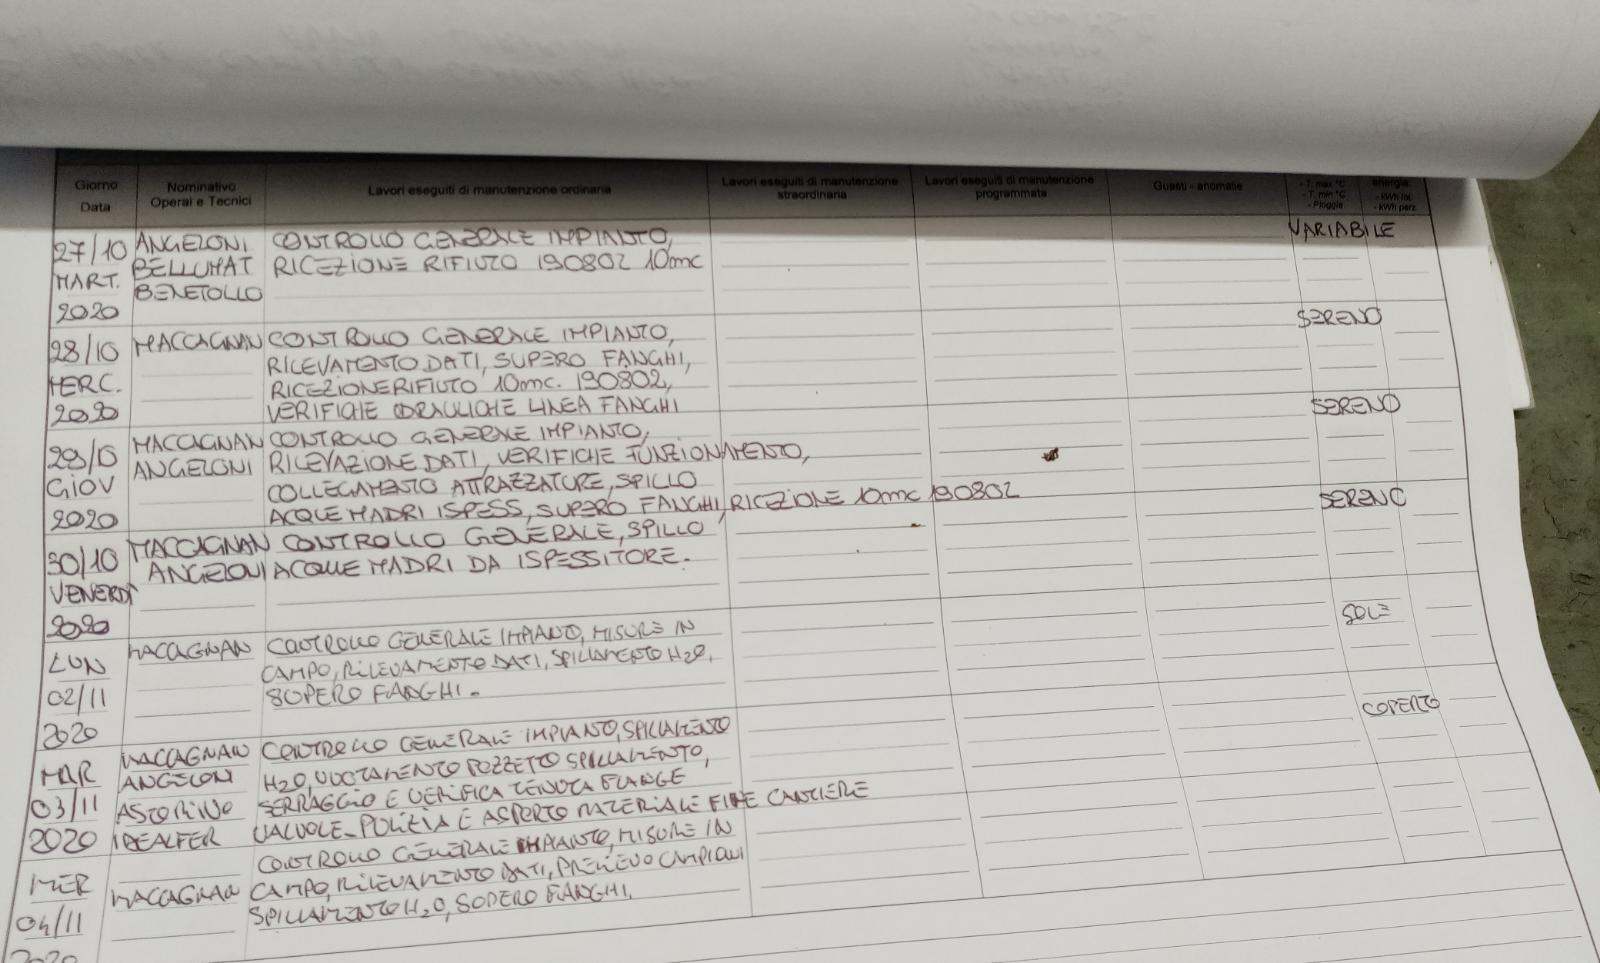 Giorno
Data
Nominativo
Operai e Tecnici
Lavori eseguiti di manutenzione ordinaria
Lavori eseguiti di manutenzione
straordinaria
Lavori eseguiti di manutenzione
programmata
Guasti - anomalie
- T. max °C
- T. min °C
- Pioggia
energia:
- kWh tot.
- kWh parz.
27/10
MART.
2020
ANGELONI
BELLUMAT
BENETOLLO
CONTROLLO GENERALE IMPIANTO,
RICEZIONE RIFIUTO 190802 10mc
VARIABILE
28/10
MERC.
2020
MACCAGNAN
CONTROLLO GENERALE IMPIANTO,
RILEVAMENTO DATI, SUPERO FANGHI,
RICEZIONE RIFIUTO 10mc. 190802,
VERIFICHE IDRAULICHE LINEA FANGHI
SERENO
29/10
GIOV
2020
MACCAGNAN
ANGELONI
CONTROLLO GENERALE IMPIANTO,
RILEVAZIONE DATI, VERIFICHE FUNZIONAMENTO,
COLLEGAMENTO ATTRAZZATURE, SPILLO
ACQUE MADRI ISPESS, SUPERO FANGHI, RICEZIONE 10mc 190802
SERENO
30/10
VENERDÌ
2020
MACCAGNAN
ANGELONI
CONTROLLO GENERALE, SPILLO
ACQUE MADRI DA ISPESSITORE.
SERENO
LUN
02/11
2020
MACCAGNAN
CONTROLLO GENERALE IMPIANTO, MISURE IN
CAMPO, RILEVAMENTO DATI, SPILLAMENTO H2O,
SUPERO FANGHI.
SOLE
MAR
03/11
2020
MACCAGNAN
ANGELONI
ASTORINO
IDEALFER
CONTROLLO GENERALE IMPIANTO, SPILLAMENTO
H2O, VUOTAMENTO POZZETTO SPILLAMENTO,
SERRAGGIO E VERIFICA TENUTA FLANGE
VALVOLE. PULIZIA E ASPORTO MATERIALE FINE CANTIERE
COPERTO
MER
04/11
2020
MACCAGNAN
CONTROLLO GENERALE IMPIANTO, MISURE IN
CAMPO, RILEVAMENTO DATI, PRELIEVO CAMPIONI
SPILLAMENTO H2O, SUPERO FANGHI.